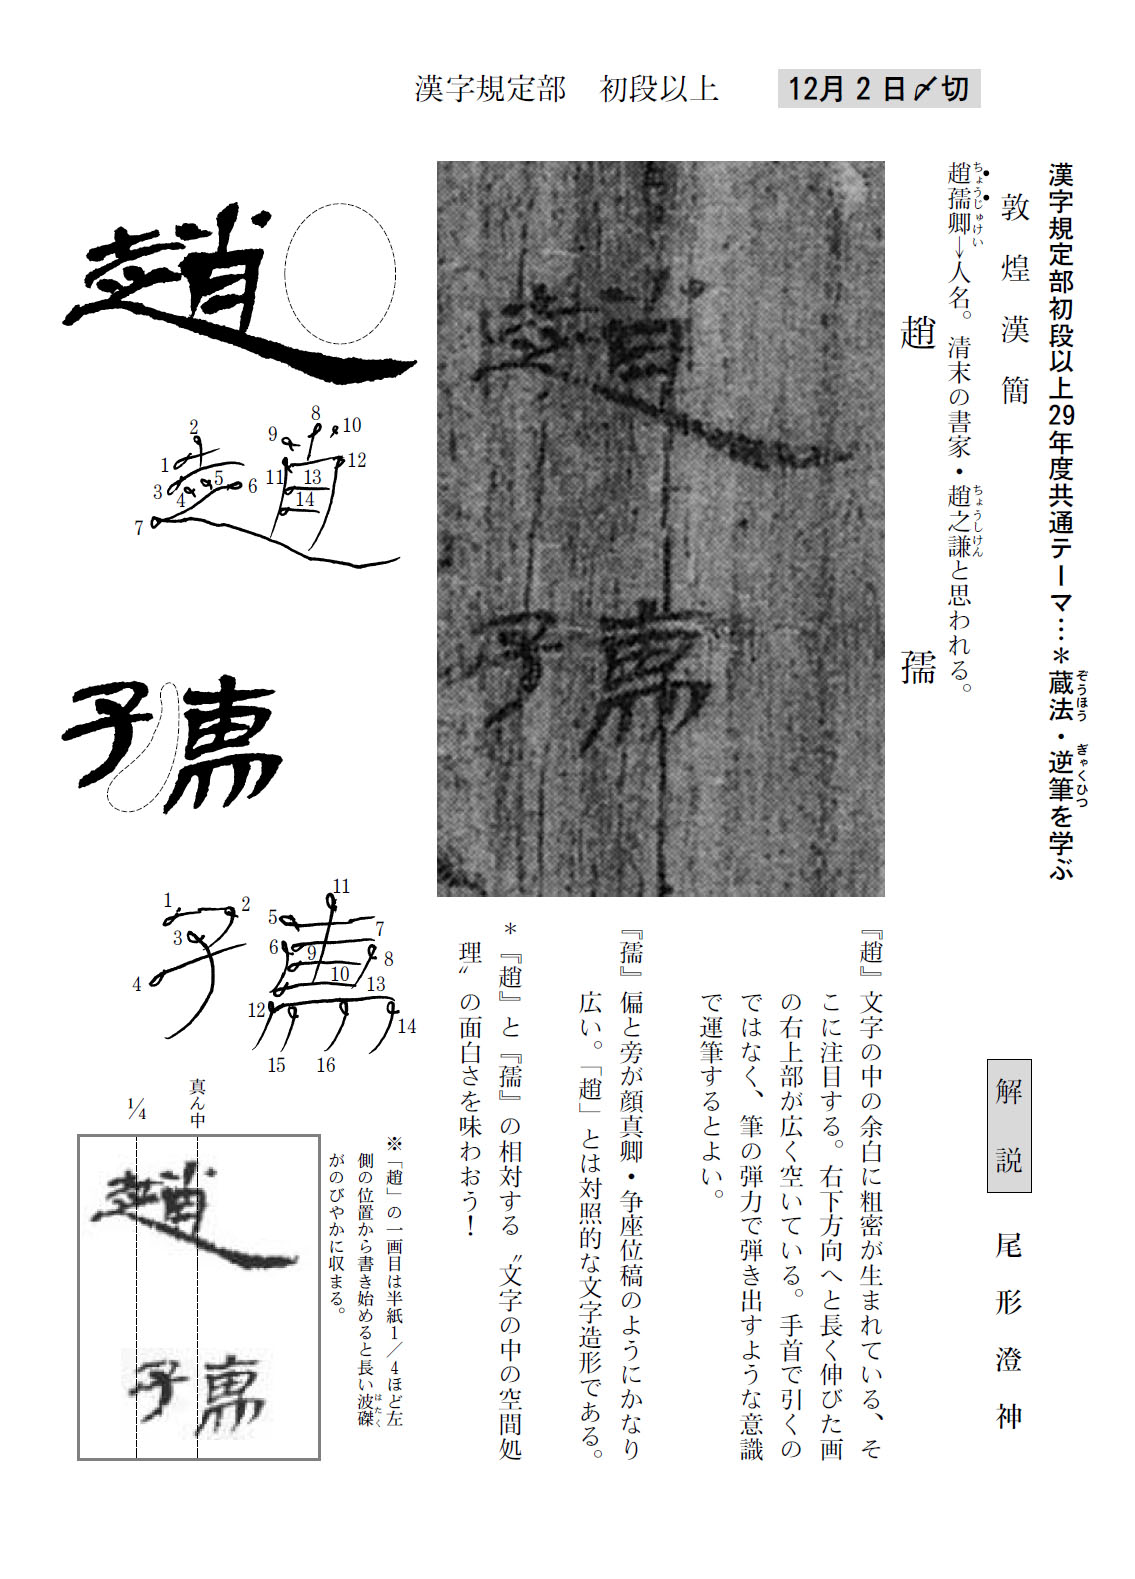 漢字規定部　初段以上
12月2日〆切
漢字規定部初段以上29年度共通テーマ…＊蔵法・逆筆を学ぶ
ぞうほう
ぎゃくひつ
敦煌漢簡
趙孺卿→人名。清末の書家・趙之謙と思われる。
ちょうじゅけい
ちょうしけん
趙　孺
解説　尾形澄神
『趙』文字の中の余白に粗密が生まれている、そ
こに注目する。右下方向へと長く伸びた画
の右上部が広く空いている。手首で引くの
ではなく、筆の弾力で弾き出すような意識
で運筆するとよい。
『孺』偏と旁が顔真卿・争座位稿のようにかなり
広い。「趙」とは対照的な文字造形である。
＊『趙』と『孺』の相対する〝文字の中の空間処
理〟の面白さを味わおう！
趙
孺
趙
1
2
3
4
5
6
7
8
9
10
11
12
13
14
孺
1
2
3
4
5
6
7
8
9
10
11
12
13
14
15
16
※「趙」の一画目は半紙1／4ほど左
側の位置から書き始めると長い波磔
はたく
がのびやかに収まる。
真ん中
1/4
趙
孺